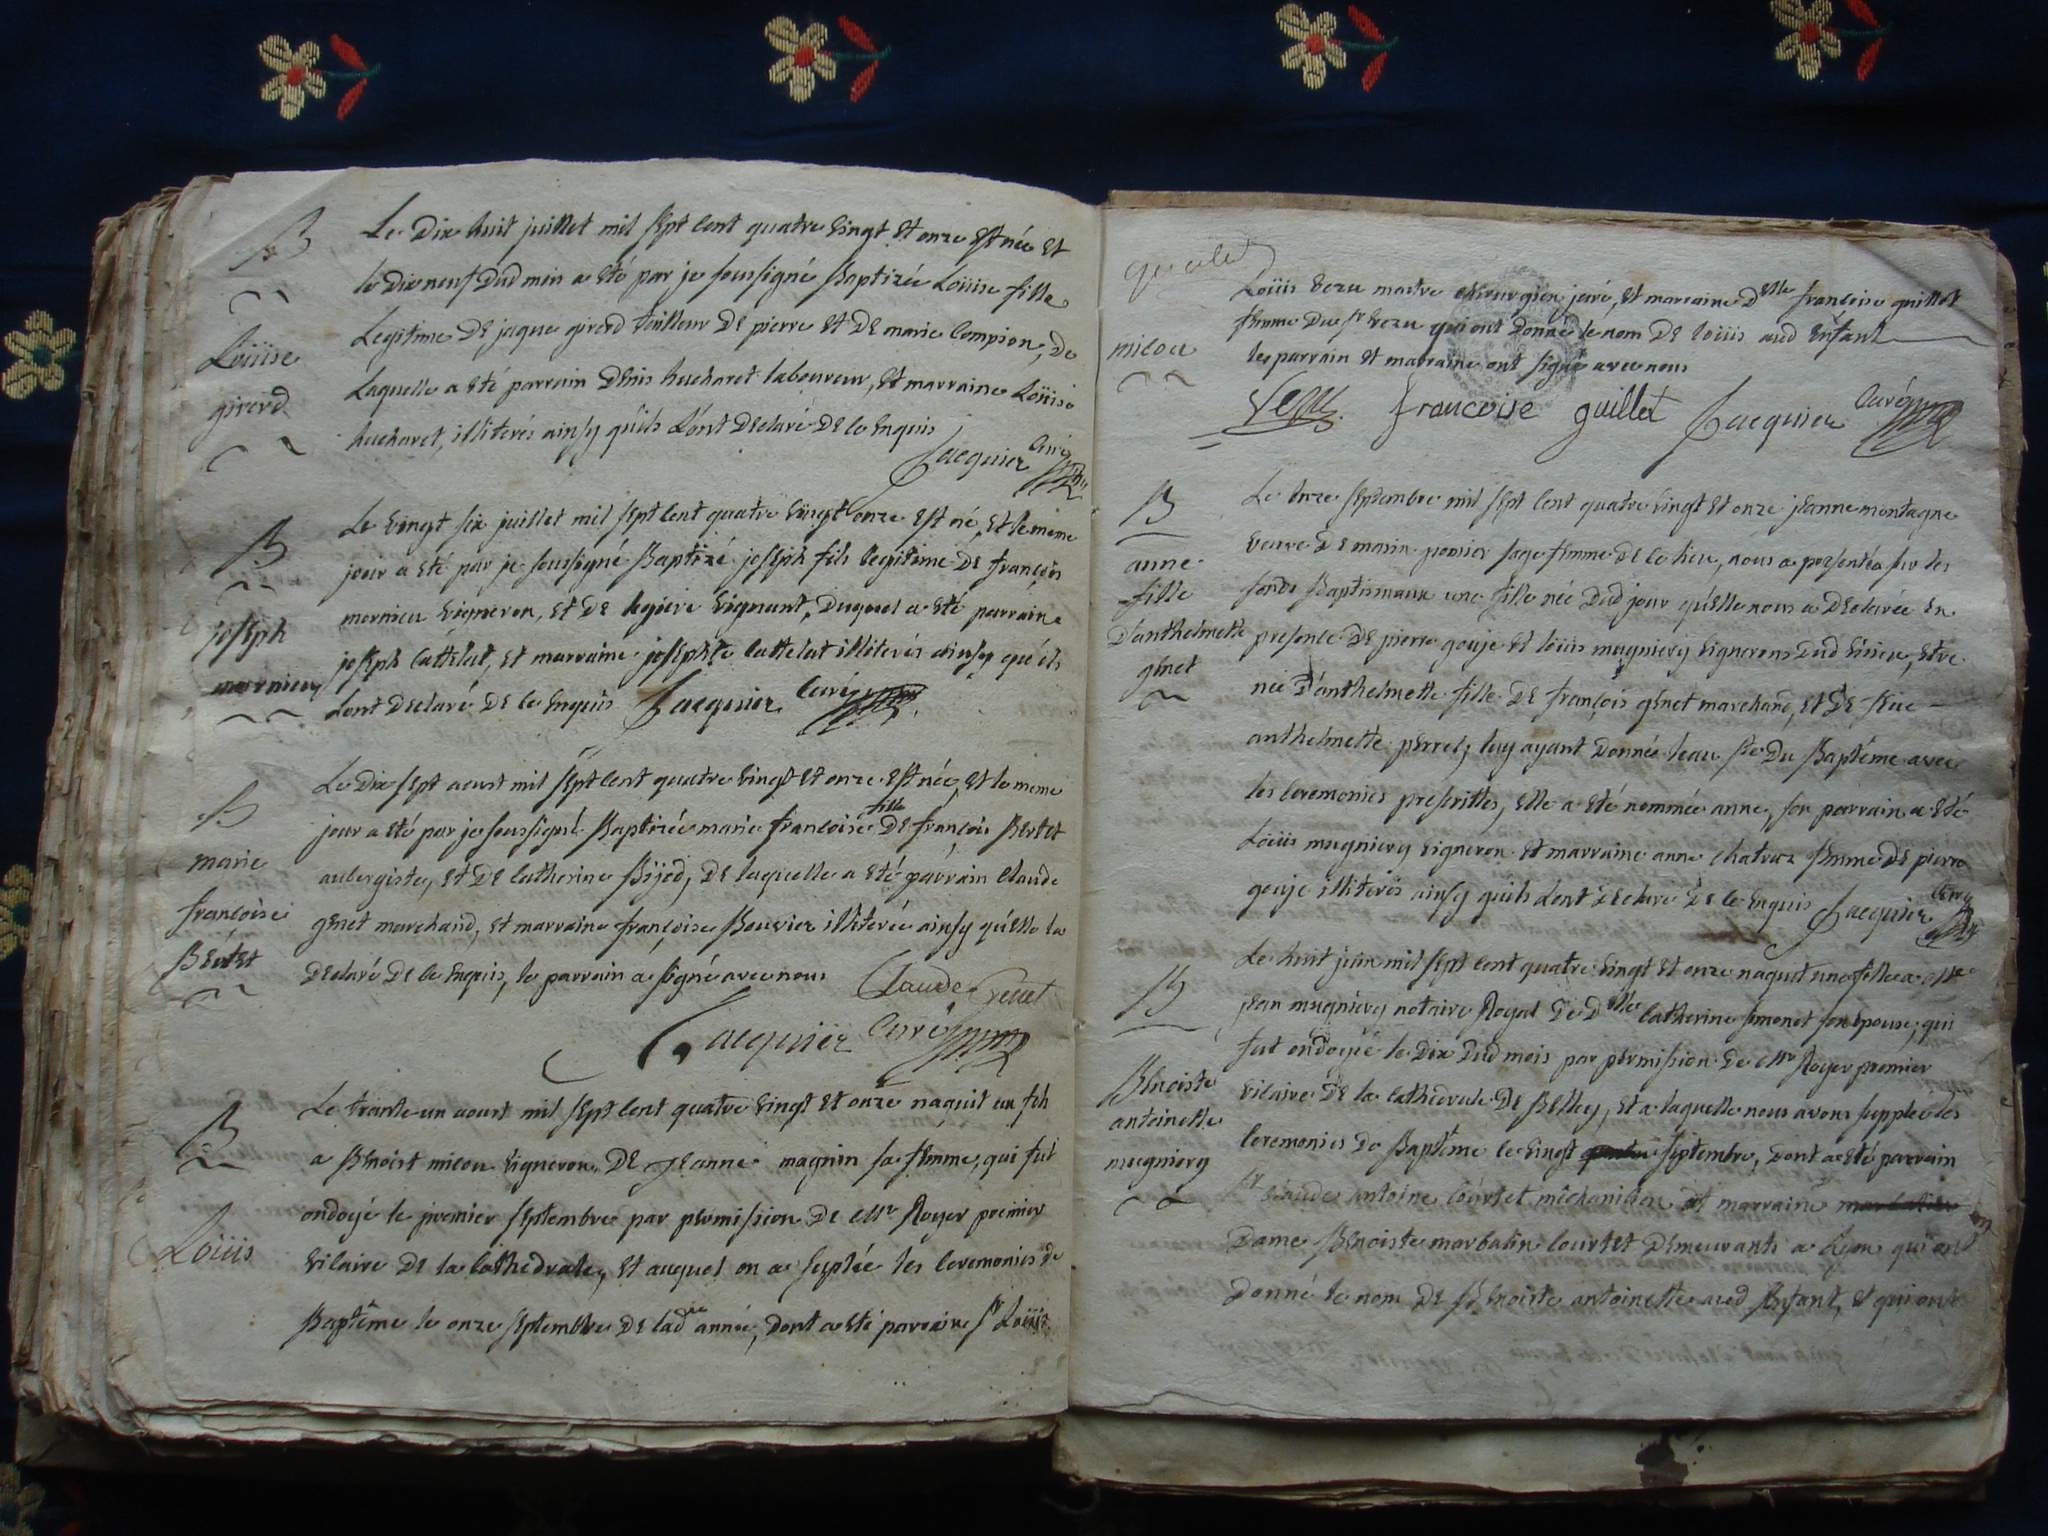 B
Louise
girerd
Le Dix huit juillet mil sept cent quatre vingt et onze est née et
le dix neuf dud mois a eté par je soussigné Baptizée Louise fille
Legitime De jaque girerd tailleur De pierre et De marie Compion, de
Laquelle a eté parrain Denis hucharet laboureur, et marraine Louise
hucharet, illiterés ainsy qu'ils L'ont Declaré De ce Enquis
Jacquier Curé
B
joseph
mornieu
Le vingt six juillet mil sept cent quatre vingt onze est né, et le meme
jour a eté par je soussigné Baptizé joseph fils legitime De françois
mornieu vigneron, et De legiere vignant, Duquel a eté parrain
joseph Cattelat, et marraine josephte Cattelat illiterés ainsy qu'ils
Lont Declaré De ce Enquis Jacquier Curé
B
marie
francoise
Bertet
Le Dix sept aoust mil sept cent quatre vingt et onze est née, et le meme
jour a eté par je soussigné Baptizée marie francoise fille De françois Bertet
aubergiste, et De Catherine Bijod, De laquelle a eté parrain Claude
genet marchand, et marraine françoise Bouvier illiterée ainsy qu'elle la
Declaré De ce Enquis, le parrain a signé avec nous Claude Genet
Jacquier Curé
B
Louis
Le trante un aoust mil sept cent quatre vingt et onze naquit un fils
a Benoist micou vigneron, De jeanne magnin sa femme, qui fut
ondoyé le premier septembre par permission De Mr Royer premier
vicaire De la Cathedrale, et auquel on a supleé les Ceremonies de
Baptême le onze septembre De lad année, Dont a eté parrain Sr Louis
micou
Louis vezu maitre chirurgien juré, et marraine Delle francoise guillot
femme Du sr vezu qui ont Donné le nom De Louis aud Enfant
les parrain et marraine ont signé avec nous
Vezu. francoise guillet Jacquier Curé
B
anne
fille
D'anthelmette
genet
Le onze septembre mil sept cent quatre vingt et onze jeanne montagne
veuve De marin sage femme De ce lieu, nous a presentéa sur les
fonds Baptismaux une fille née Dud jour qu'elle nous a Declarée En
presence De pierre gouje et Louis mugniery vignerons Dud, etre
née D'anthelmette fille De françois genet marchand, et De feue
anthelmette perret, luy ayant Donnée leau ste Du Baptême avec
les Ceremonies prescrittes, elle a eté nommée anne, son parrain a eté
Louis mugniery vigneron et marraine anne femme De pierre
gouje illiterés ainsy quils Lont Declaré De ce Enquis Jacquier Curé
B
Benoiste
antoinette
mugniery
Le huit juin mil sept cent quatre vingt et onze naquit une fille a Mre
jean mugniery notaire Royal De Delle Catherine simonet son Epouse, qui
fut ondoyée le Dix Dud mois par permission De Mr Royer premier
vicaire De la Cathedrale De Belley, et a laquelle nous avons suppleé les
Ceremonies De Baptême le vingt septembre, Dont a eté parrain
sr Claude antoine Courtet méchanicien et marraine
Dame Benoiste marbatin Courtet Demeurants a Lyon qui ont
Donné le nom De Benoiste antoinette aud Enfant, et qui ont